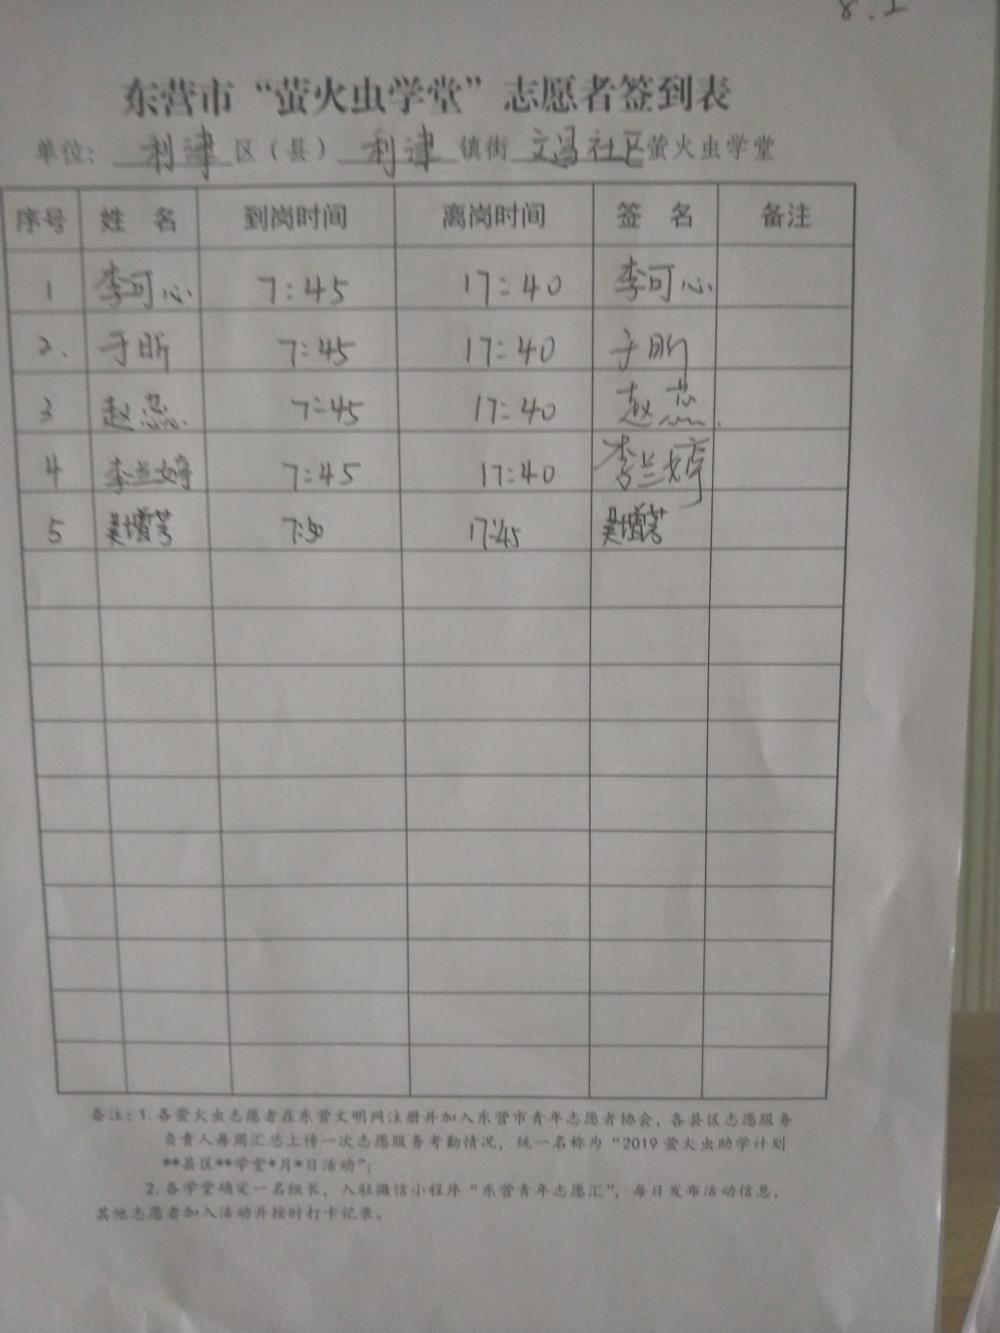 东营市“萤火虫学堂”志愿者签到表
单位：利津区（县）利津镇街文昌社区萤火虫学堂
序号 姓名 到岗时间 离岗时间 签名 备注
1 李可心 7:45 17:40 李可心
2. 于昕 7:45 17:40 于昕
3 赵蕊 7:45 17:40 赵蕊
4 李兰婷 7:45 17:40 李兰婷
5 吴增芳 7:50 17:45 吴增芳
备注：1.各萤火虫志愿者在东营文明网注册并加入东营市青年志愿者协会，各县区志愿服务
负责人每周汇总上传一次志愿服务考勤情况，统一名称为“2019萤火虫助学计划
**县区**学堂*月*日活动”；
2.各学堂确定一名组长，入驻微信小程序“东营青年志愿汇”，每日发布活动信息，
其他志愿者加入活动并按时打卡记录。